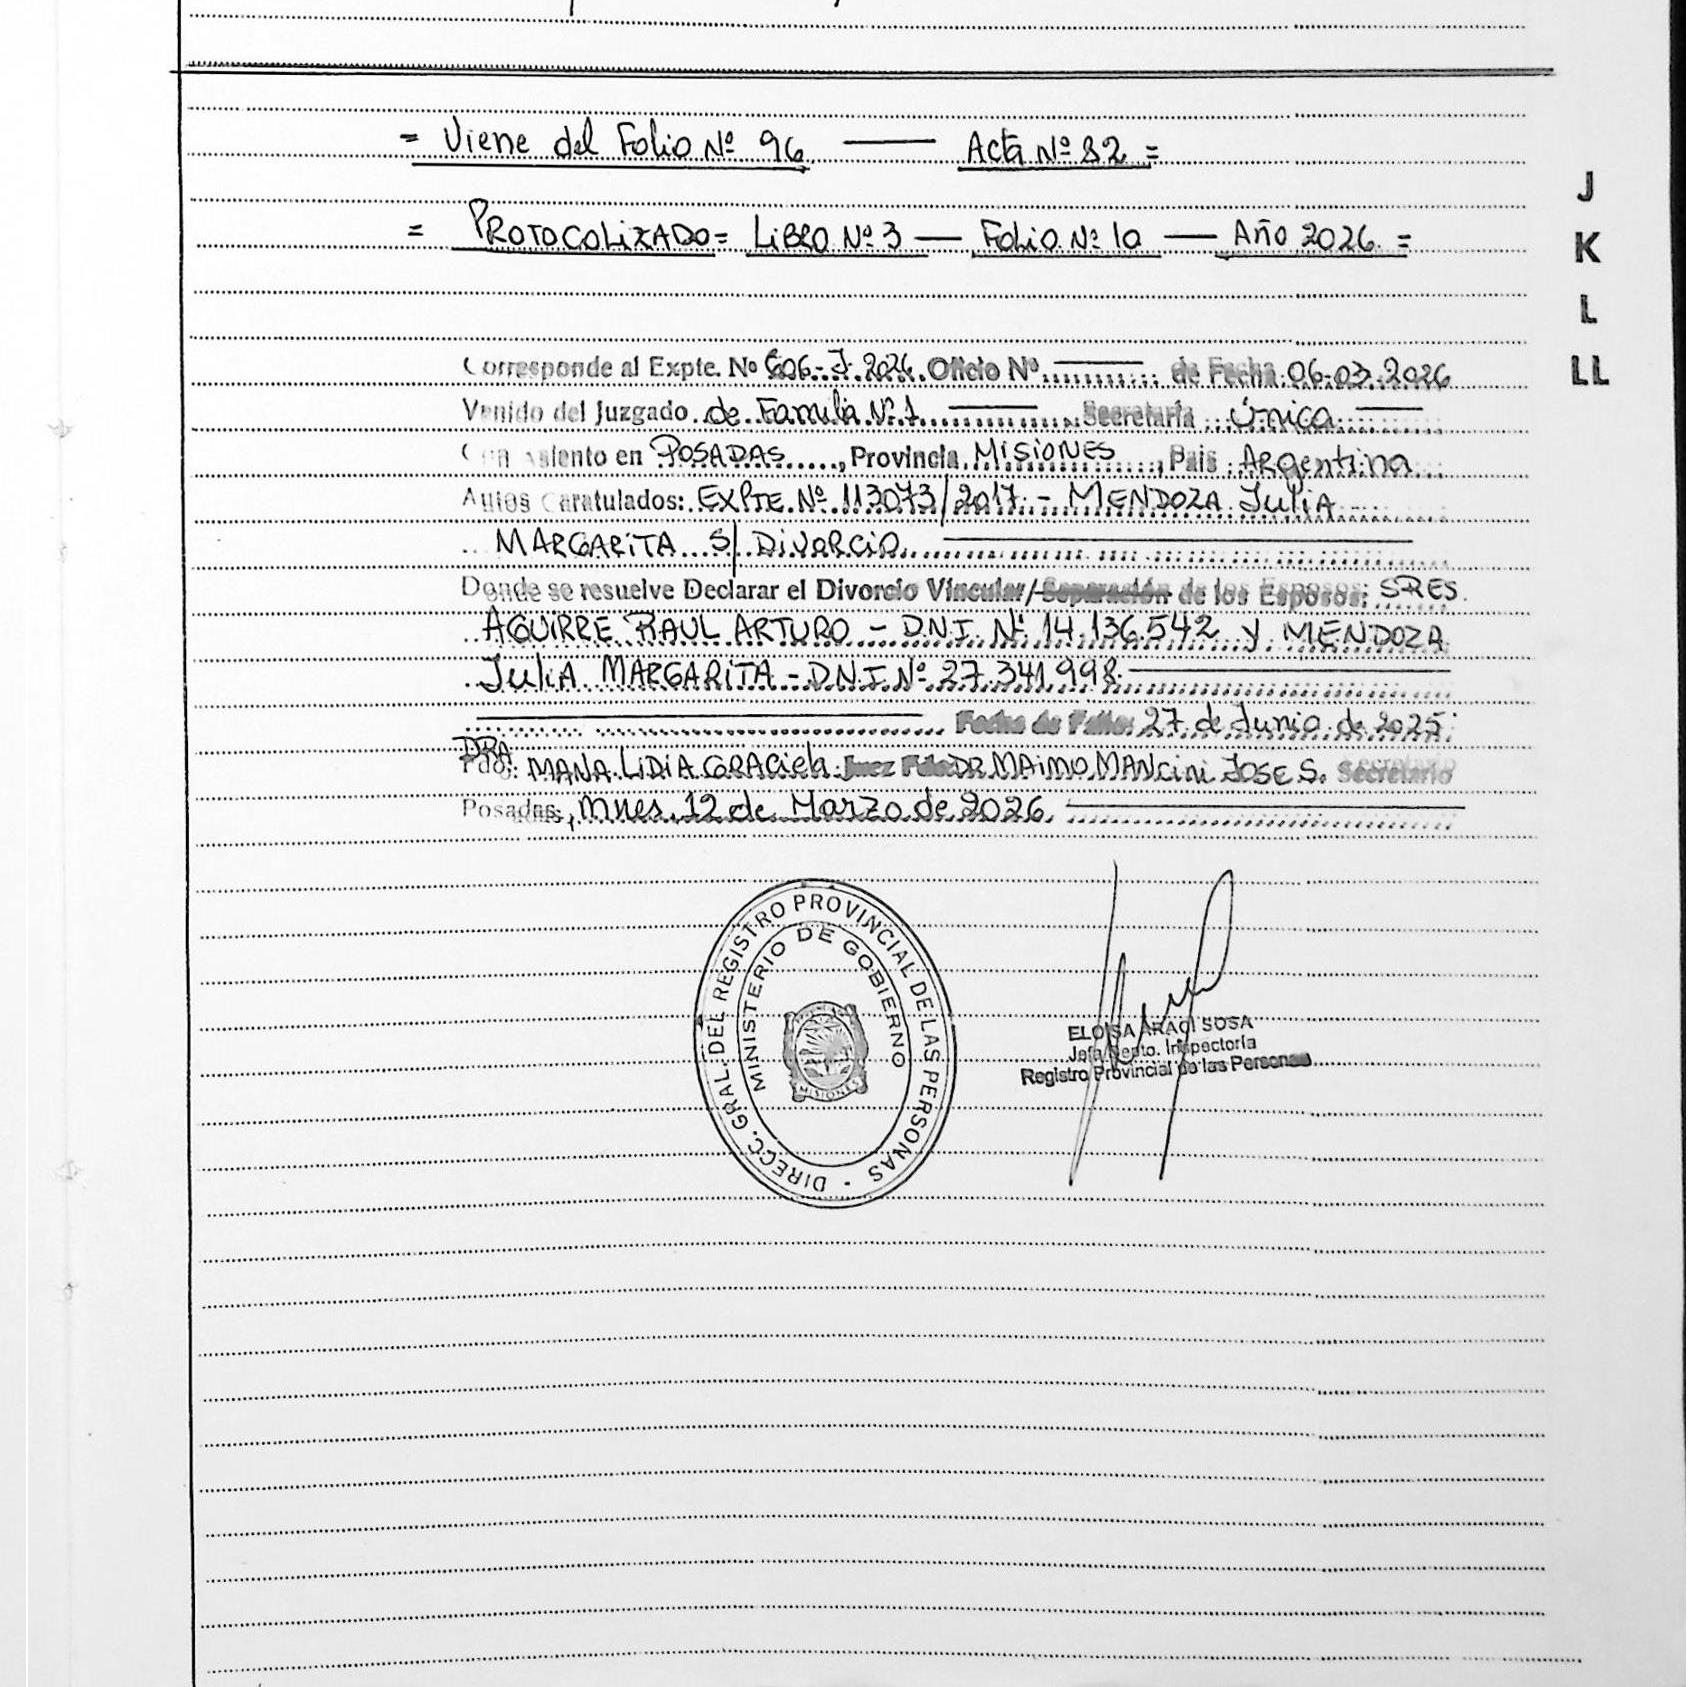 = Viene del Folio Nº 96 — Acta Nº 82 =
= PROTOCOLIZADO = LIBRO Nº 3 — FOLIO Nº 10 — Año 2026 =
J
K
L
LL
Corresponde al Expte. Nº 606-J-2026. Oficio Nº — de Fecha 06-03-2026
Venido del Juzgado de Familia Nº 1 — Secretaría Única —
Con Asiento en POSADAS, Provincia MISIONES, Pais Argentina
Autos Caratulados: EXPTE. Nº 113073/2017 - MENDOZA JULIA
MARGARITA S/ DIVORCIO —
Donde se resuelve Declarar el Divorcio Vincular/Separación de los Esposos: SRES
AGUIRRE RAUL ARTURO - D.N.I. Nº 14.136.542 y MENDOZA
JULIA MARGARITA - D.N.I. Nº 27.341.998 —
— Fecha de Fallo: 27 de Junio de 2025
DRA
Fdo: MANA LIDIA GRACIELA Juez Fdo DR MAIMO MANCINI JOSE S. Secretario
Posadas, Mnes, 12 de Marzo de 2026. —
DIRECC. GRAL. DEL REGISTRO PROVINCIAL DE LAS PERSONAS
MINISTERIO DE GOBIERNO
MISIONES
ELOISA ARACI SOSA
Jefa Depto. Inspectoría
Registro Provincial de las Personas